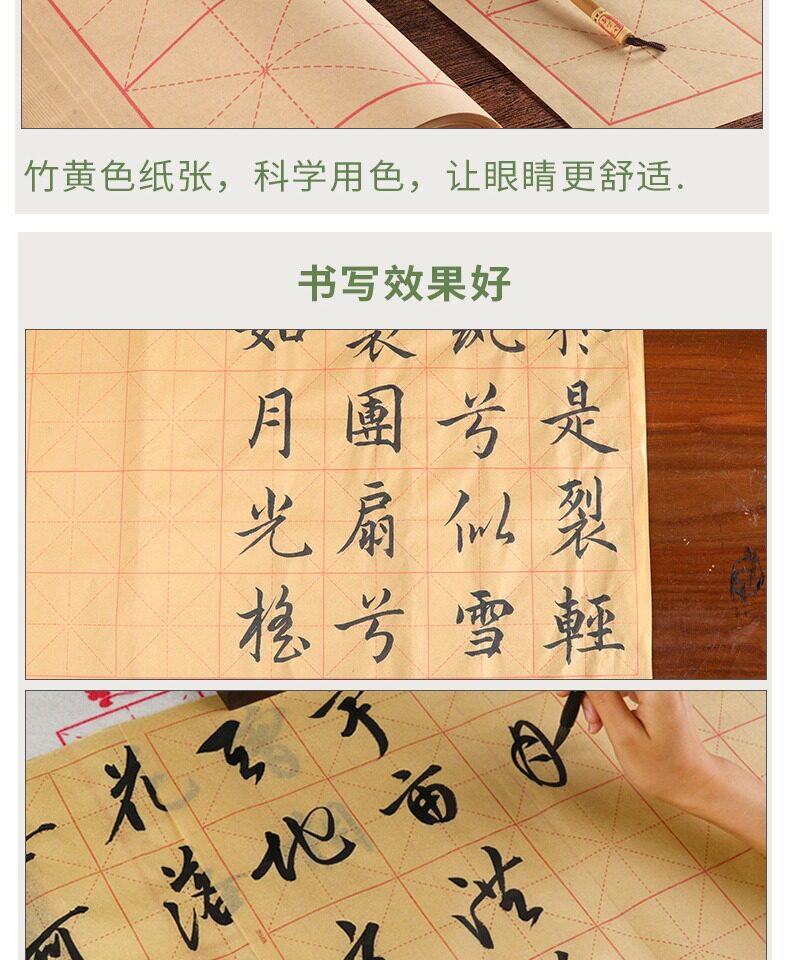 竹黄色纸张，科学用色，让眼睛更舒适.
书写效果好
是裂輕
兮似雪
團扇兮
如月光搖
月
天地
花落